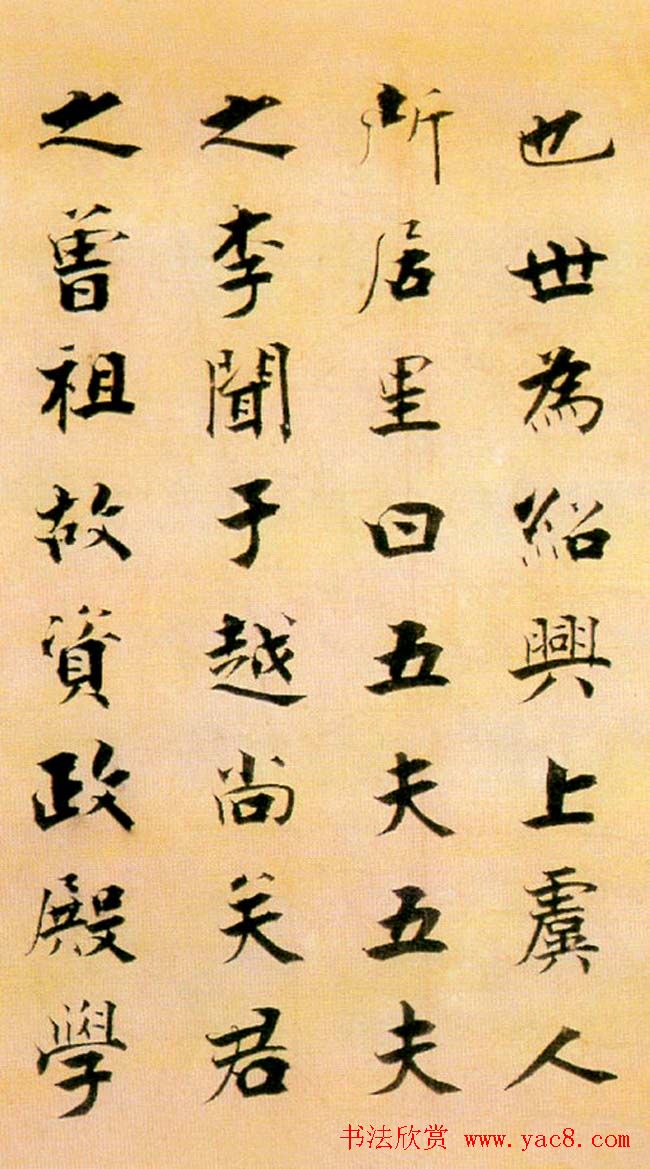 也世為紹興上虞人
所居里曰五夫五夫
之李聞于越尚矣君
之曾祖故資政殿學
书法欣赏 www.yac8.com